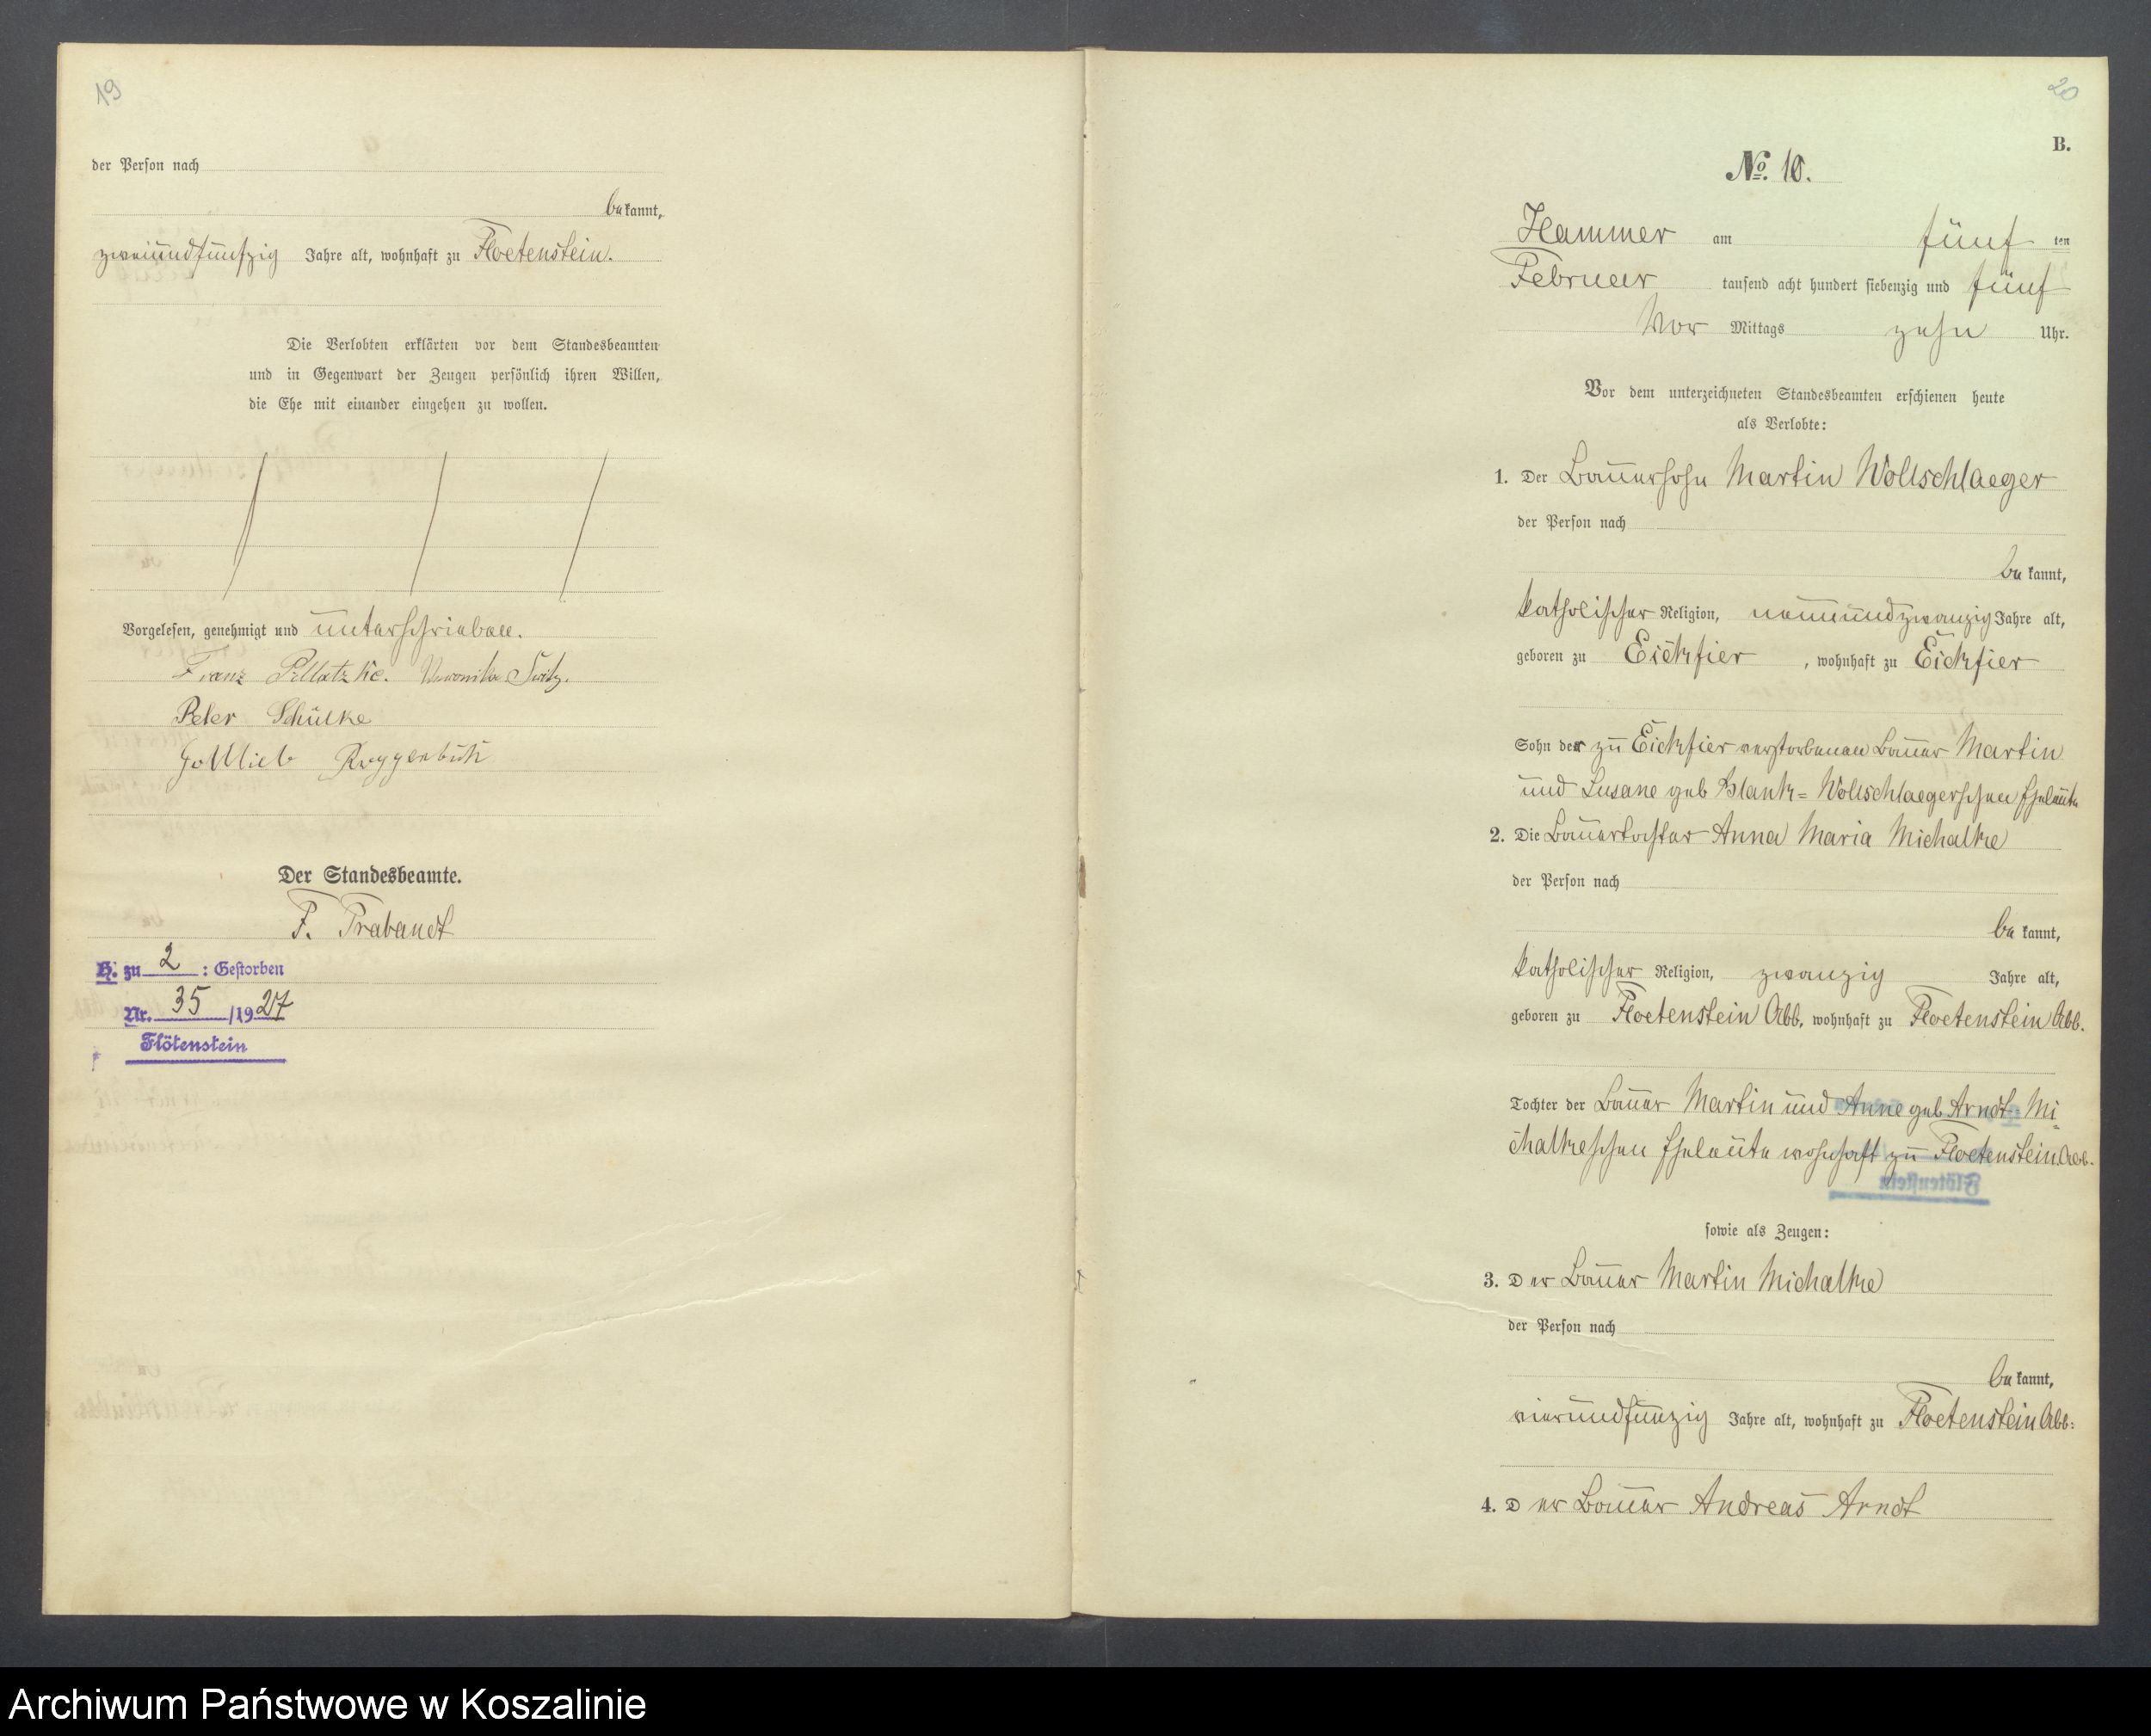 19
der Person nach
bekannt,
zweiundfünfzig Jahre alt, wohnhaft zu Floetenstein.
Die Verlobten erklärten vor dem Standesbeamten
und in Gegenwart der Zeugen persönlich ihren Willen,
die Ehe mit einander eingehen zu wollen.
Vorgelesen, genehmigt und unterschrieben.
Franz Pellatzke. Veronika
Peter Schülke
Gottlieb Roggenbuk
Der Standesbeamte.
F. Trabandt
H. zu 2 : Gestorben
Nr. 35 /1927
Flötenstein
20
B.
No. 10.
Hammer am fünf ten
Februar tausend acht hundert siebenzig und fünf
Vor Mittags zehn Uhr.
Vor dem unterzeichneten Standesbeamten erschienen heute
als Verlobte:
1. Der Bauersohn Martin Wollschlaeger
der Person nach
be kannt,
katholischer Religion, neunundzwanzig Jahre alt,
geboren zu Eickfier , wohnhaft zu Eickfier
Sohn der zu Eickfier verstorbenen Bauer Martin
und Susane geb Blank= Wollschlaegerschen Eheleute
2. Die Bauertochter Anna Maria Michalke
der Person nach
be kannt,
katholischer Religion, zwanzig Jahre alt,
geboren zu Floetenstein Abb. wohnhaft zu Floetenstein Abb.
Tochter der Bauer Martin und Anne geb Arndt Mi=
chalkeschen Eheleute wohnhaft zu Floetenstein Abb.
Flötenstein
sowie als Zeugen:
3. D er Bauer Martin Michalke
der Person nach
be kannt,
vierundfunzig Jahre alt, wohnhaft zu Floetenstein Abb:
4. D er Bauer Andreas Arndt
Archiwum Państwowe w Koszalinie